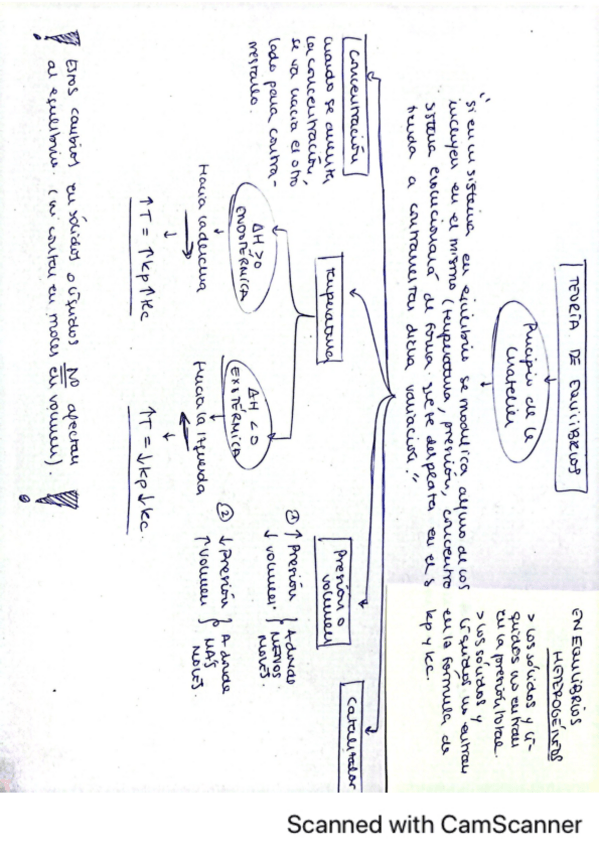 TEORÍA DE EQUILIBRIOS
Principio de le
Chatelier
"Si en un sistema en equilibrio se modifica alguno de los
influyen en el mismo (temperatura, presión, concentra
sistema evolucionará de forma que se desplaza en el s
tienda a contrarrestar dicha variación."
EN EQUILIBRIOS
HETEROGÉNEOS
> Los sólidos y lí-
quidos no entran
en la presión total.
> Los sólidos y
líquidos no entran
en la fórmula de
kp y kc.
Concentración
cuando se aumenta
la concentración,
se va hacia el otro
lado para contra-
rrestarlo.
Temperatura
ΔH>0
ENDOTÉRMICA
Hacia la derecha
↑T = ↑kp ↑kc
ΔH<0
EXOTÉRMICA
Hacia la izquierda
↑T = ↓kp ↓kc.
Presión o
volumen
① ↑Presión
↓volumen
A donde
MENOS
moles.
② ↓Presión
↑Volumen
A donde
MÁS
moles.
Catalizador
! Estos cambios en sólidos o líquidos NO afectan
al equilibrio. (ni contar en moles en volumen). !
Scanned with CamScanner